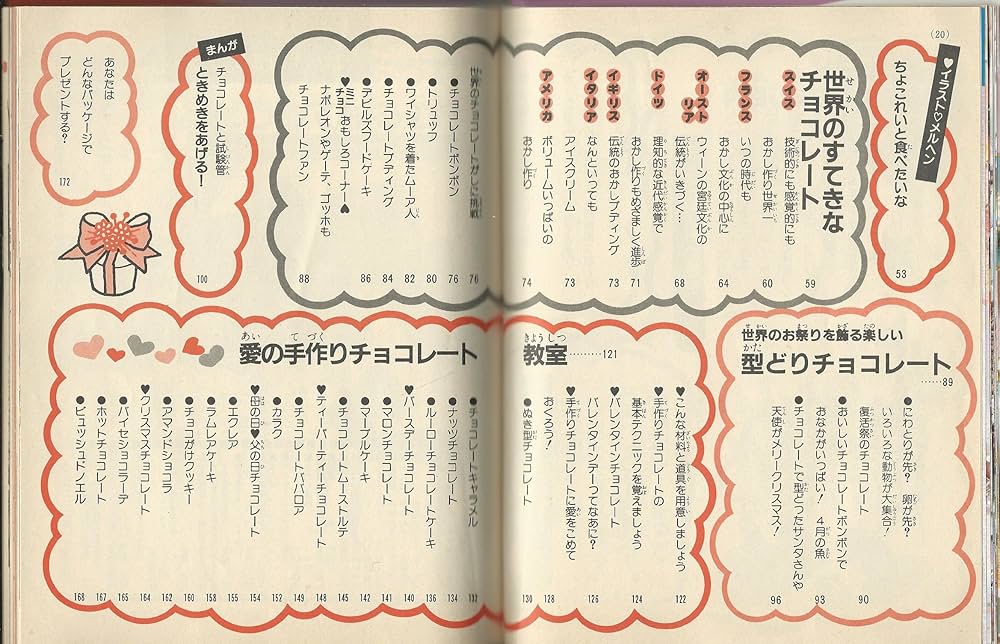 (20)
♥イラスト♡メルヘン
ちょこれいと食べたいな
53
世界のすてきな
チョコレート
スイス
技術的にも感覚的にも
おかし作り世界一
59
フランス
いつの時代も
おかし文化の中心に
60
オーストリア
ウィーンの宮廷文化の
伝統がいきづく…
64
ドイツ
理知的な近代感覚で
おかし作りもめざましく進歩
68
イギリス
伝統のおかしプディング
71
イタリア
なんといっても
アイスクリーム
73
アメリカ
ボリュームいっぱいの
おかし作り
73
74
世界のチョコレートがしに挑戦
76
●チョコレートボンボン
76
●トリュフ
80
●ワイシャツを着たムーア人
82
●チョコレートプディング
84
●デビルズフードケーキ
86
♥ミニチョコおもしろコーナー♥
ナポレオンやゲーテ、ゴッホも
チョコレートファン
88
まんが
チョコレートと試験管
ときめきをあげる!
100
あなたは
どんなパッケージで
プレゼントする?
172
世界のお祭りを飾る楽しい
型どりチョコレート
……89
●にわとりが先? 卵が先?
いろいろな動物が大集合!
復活祭のチョコレート
90
●おいしいチョコレートボンボンで
おなかがいっぱい! 4月の魚
93
●チョコレートで型どったサンタさんや
天使がメリークリスマス!
96
愛の手作りチョコレート教室………121
♥こんな材料と道具を用意しましょう
122
♥手作りチョコレートの
基本テクニックを覚えましょう
124
♥バレンタインチョコレート
バレンタインデーってなあに?
126
♥手作りチョコレートに愛をこめて
おくろう!
128
●ぬき型チョコレート
130
●チョコレートキャラメル
132
●ナッツチョコレート
134
●ルーローチョコレートケーキ
136
♥バースデーチョコレート
140
●マロンチョコレート
141
●マーブルケーキ
142
●チョコレートムーストルテ
145
♥ティーパーティーチョコレート
148
●チョコレートババロア
149
●カラク
152
♥母の日♥父の日チョコレート
154
●エクレア
155
●ラムレアケーキ
158
●チョコがけクッキー
160
●アマンドショコラ
162
♥クリスマスチョコレート
164
●パイセショコラーデ
165
●ホットチョコレート
167
●ビュッシュドノエル
168